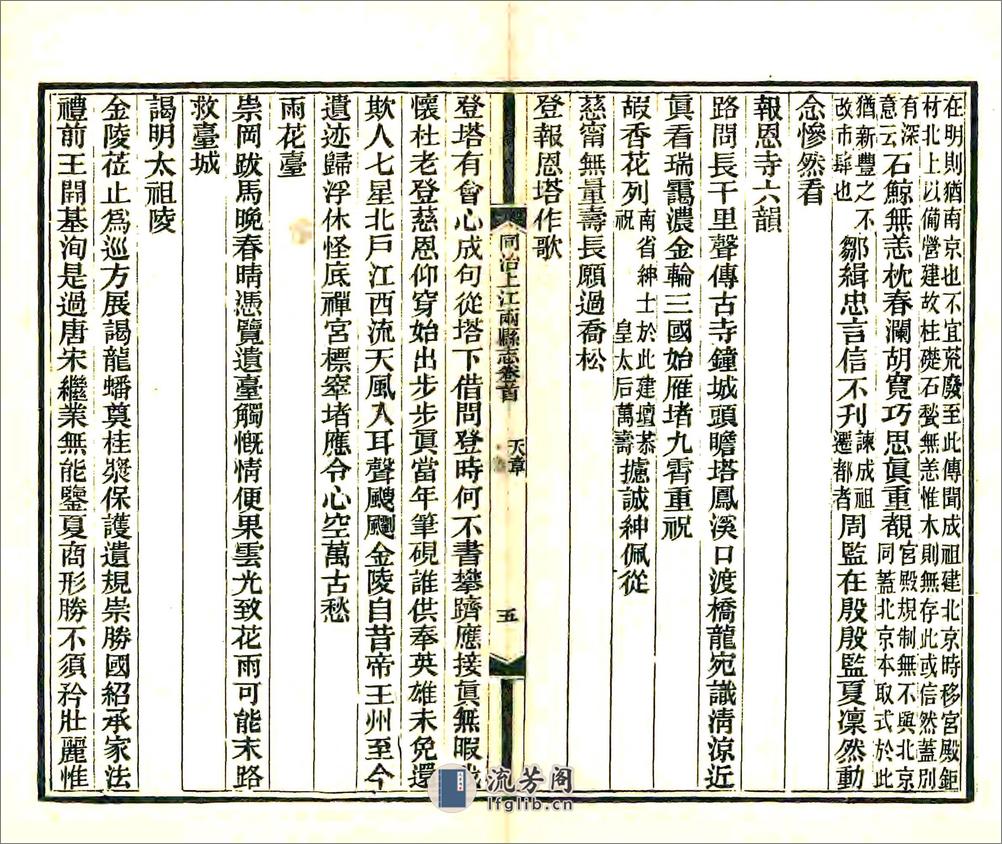 在明則猶南京也不宜荒廢至此傳聞成祖建北京時移宮殿鉅
材北上以備營建故柱礎石甃無恙惟木則無存此或信然蓋別
有深意云石鯨無恙枕春瀾胡寬巧思眞重覩宮殿規制無不與北京同蓋北京本取式於此
猶新豐之不改市肆也鄒緝忠言信不刊諫成祖遷都者周監在殷殷監夏凜然動
念慘然看
報恩寺六韻
路問長干里聲傳古寺鐘城頭瞻塔鳳溪口渡橋龍宛識淸涼近
眞看瑞靄濃金輪三國始雁堵九霄重祝
嘏香花列南省紳士於此建壇恭祝 皇太后萬壽攄誠紳佩從
慈甯無量壽長願過喬松
登報恩塔作歌
同治上江兩縣志卷首 天章 五
登塔有會心成句從塔下借問登時何不書攀躋應接眞無暇
懷杜老登慈恩仰穿始出步步眞當年筆硯誰供奉英雄未免還
欺人七星北戸江西流天風入耳聲颼飀金陵自昔帝王州至今
遺迹歸浮休怪底禪宮標窣堵應令心空萬古愁
雨花臺
崇岡跋馬晚春晴憑覽遺臺觸慨情便果雲光致花雨可能末路
救臺城
謁明太祖陵
金陵莅止為巡方展謁龍蟠奠桂漿保護遺規崇勝國紹承家法
禮前王開基洵是過唐宋繼業無能鑒夏商形勝不須矜壯麗惟
流芳阁
lfglib.cn